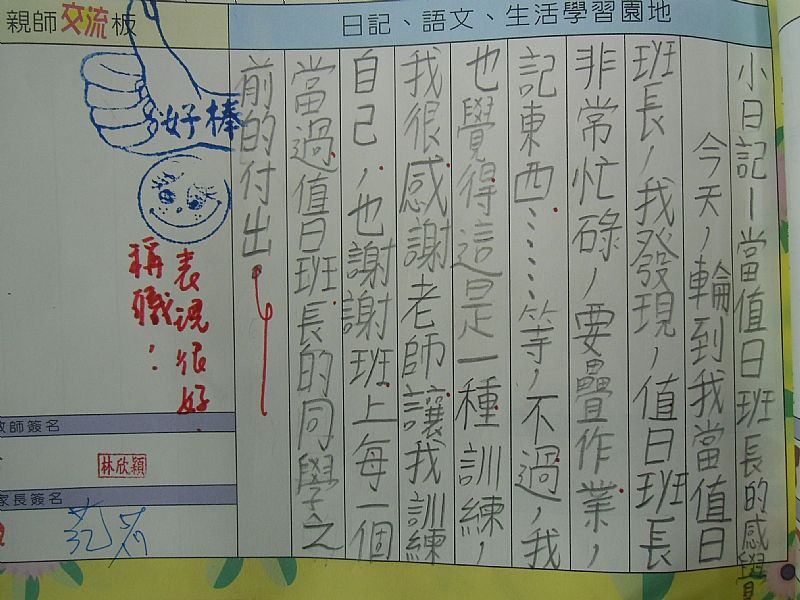 親師交流板
日記、語文、生活學習園地
小日記－當值日班長的感覺
今天，輪到我當值日
班長，我發現，值日班長
非常忙碌，要疊作業，
記東西……等，不過，我
也覺得這是一種訓練，
我很感謝老師讓我訓練
自己，也謝謝班上每一個
當過值日班長的同學之
前的付出
好棒
表現很好、
稱職！
教師簽名
林欣穎
家長簽名